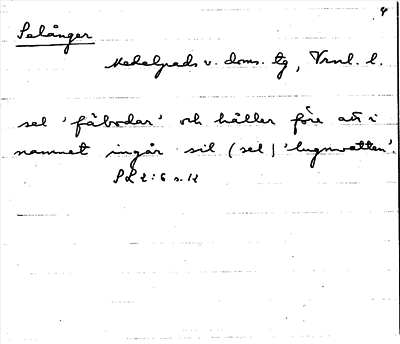 4
Selånger
Medelpads v. doms. tg, Vrnl. l.
sel 'fäbodar' och håller före att i
namnet ingår sil (sel) 'lugnvatten'.
SL 2:6 s. 12